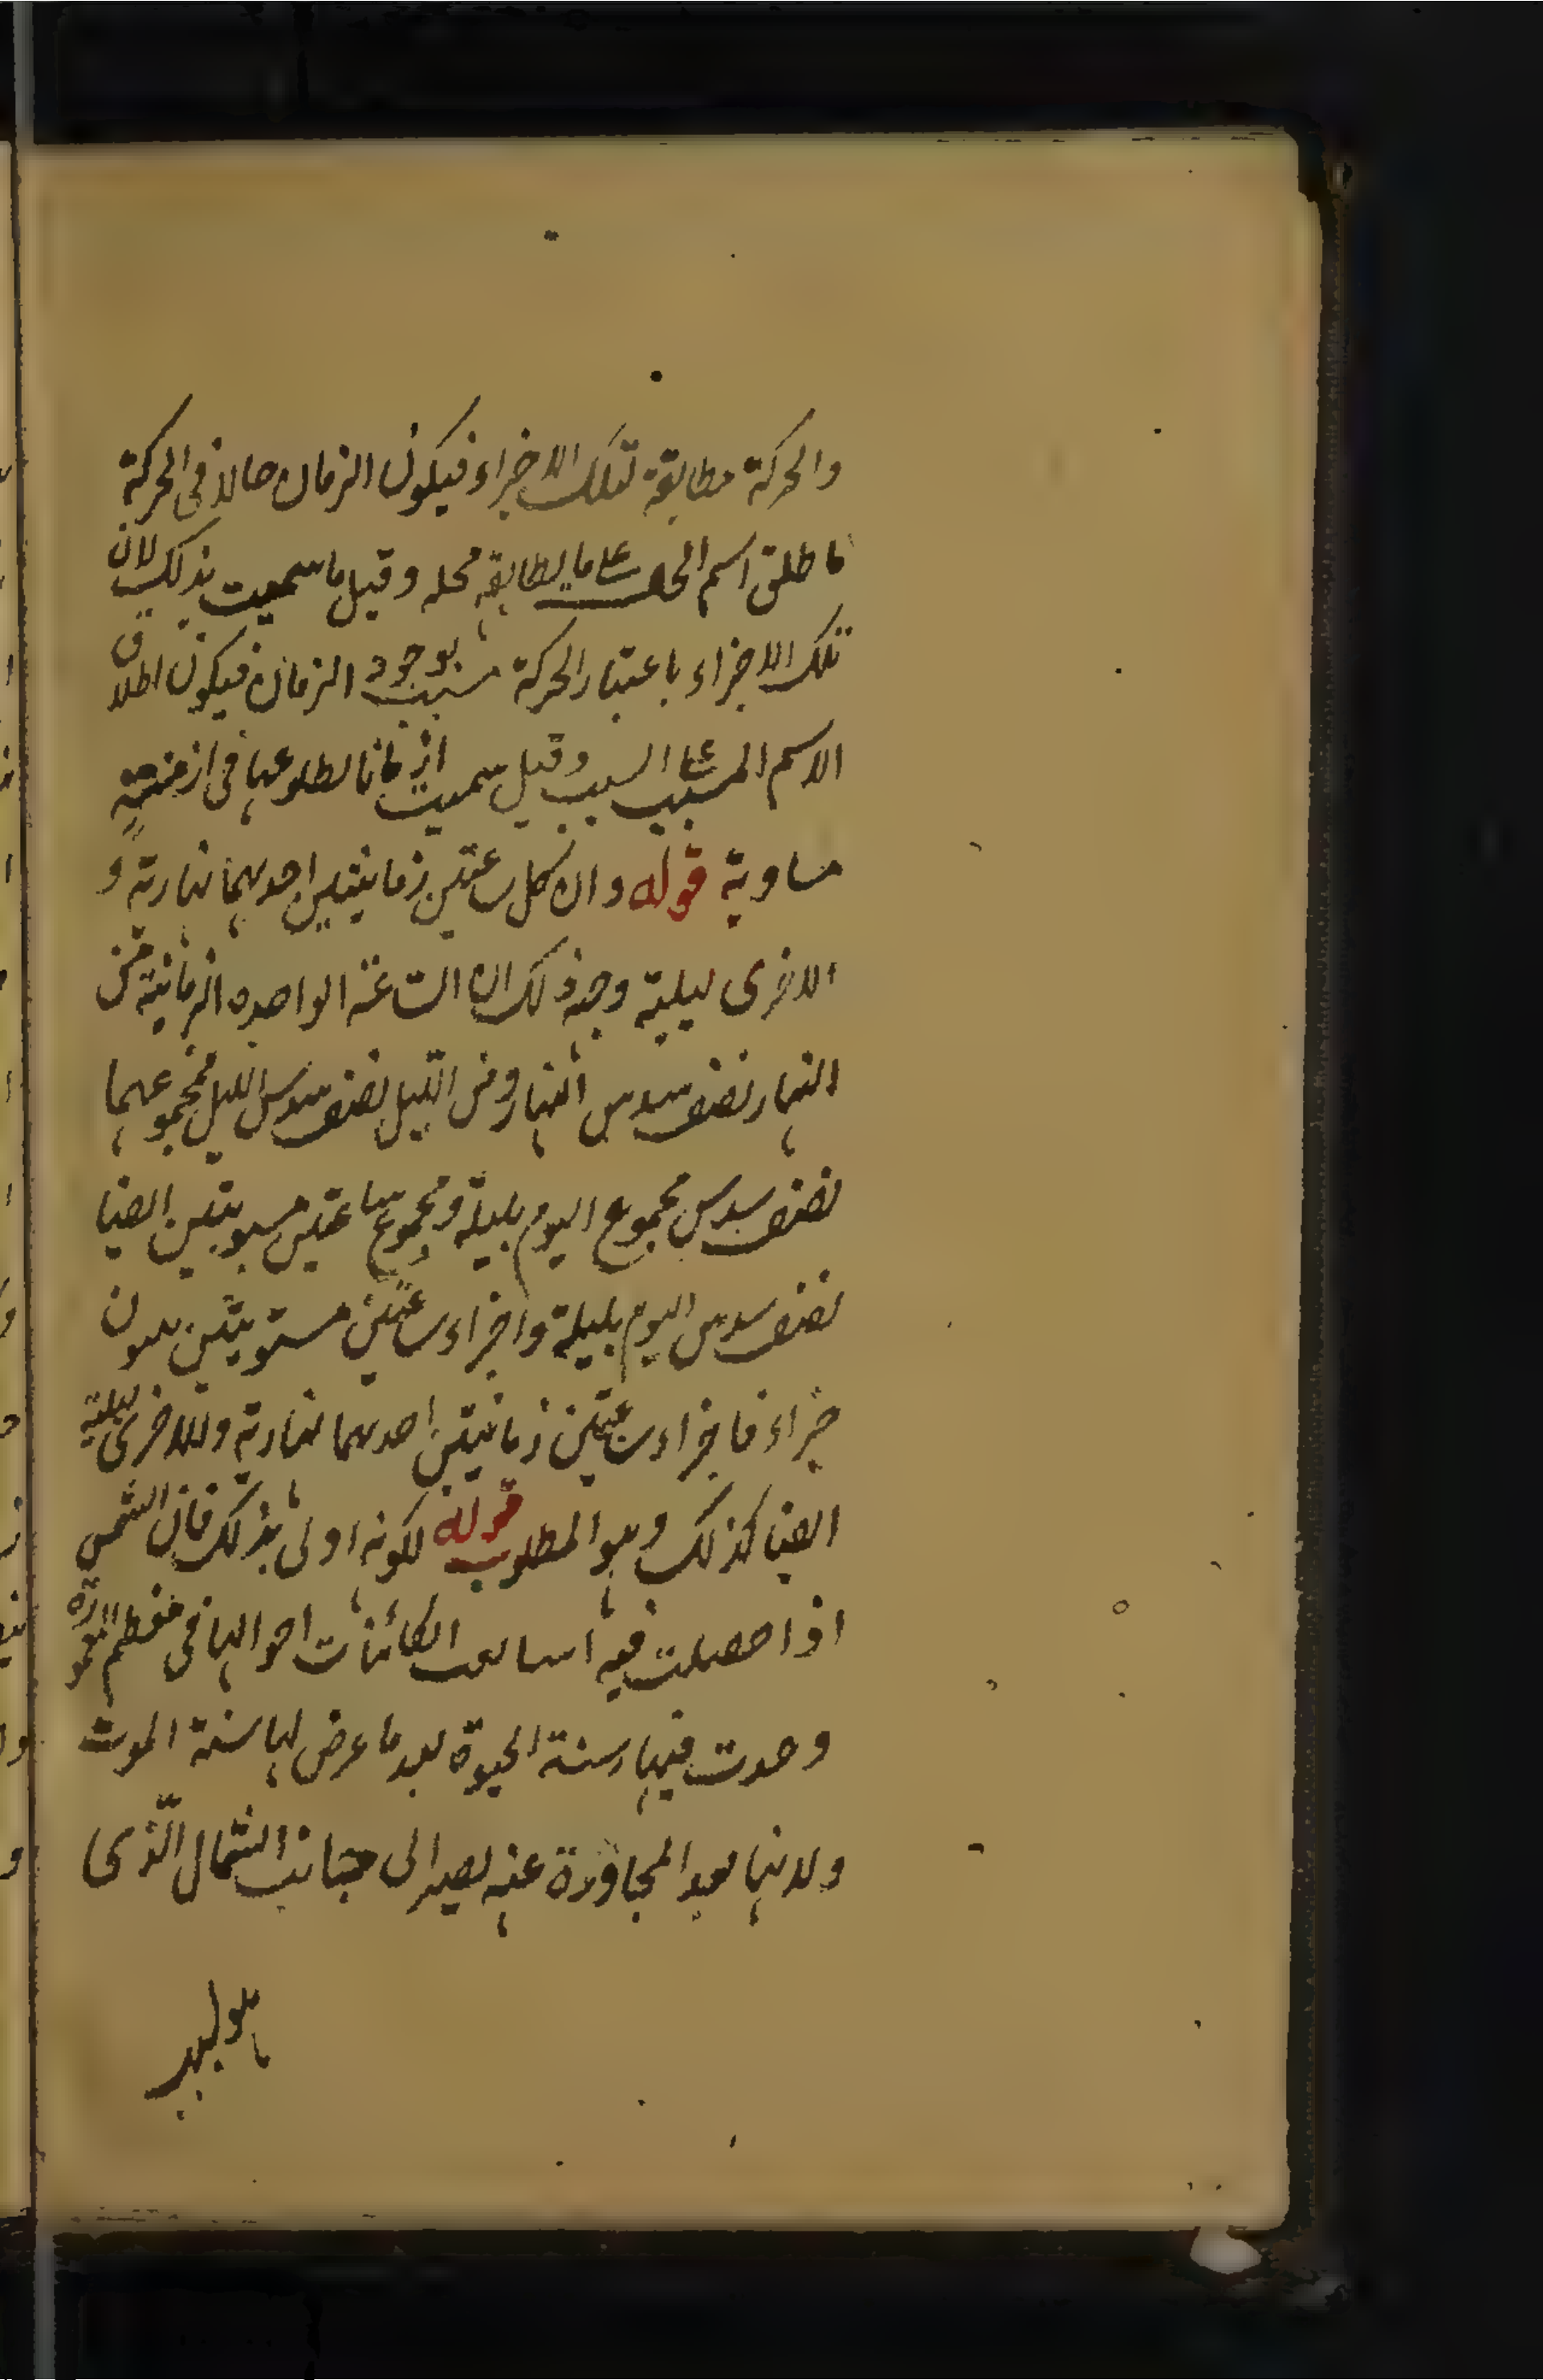 والحركة مطابقة لتلك الاجزاء فيكون الزمان حالا فى الحركة
فاطلق اسم الحال على ما يطابقه محله وقيل ما سميت بذلك لان
تلك الاجزاء باعتبار الحركة سبب بوجود الزمان فيكون اطلاق
الاسم المسبب على السبب وقيل سميت ازمانا لطلوعها فى ازمنة
مساوية قوله وان كل ساعتين زمانيتين احديهما نهارية و
الاخرى ليلية وجه ذلك ان الساعة الواحدة الزمانية من
النهار نصف سدس النهار ومن الليل نصف سدس الليل فمجموعهما
نصف سدس مجموع اليوم بليلة ومجموع ساعتين مستويتين ايضا
نصف سدس اليوم بليلة واجزاء ساعتين مستويتين يكون
جزاء فاجزاء ساعتين زمانيتين احديهما نهارية والاخرى ليلية
ايضا كذلك وهو المطلوب قوله لكونه اولى بذلك فان الشمس
اذا حصلت فيه الكائنات احوالها فى معظم المعمورة
وحدت فيها سنة الحيوة بعد ما عرض لها سنة الموت
ولانها بعد المجاوزة عنه يصير الى جانب الشمال الذى